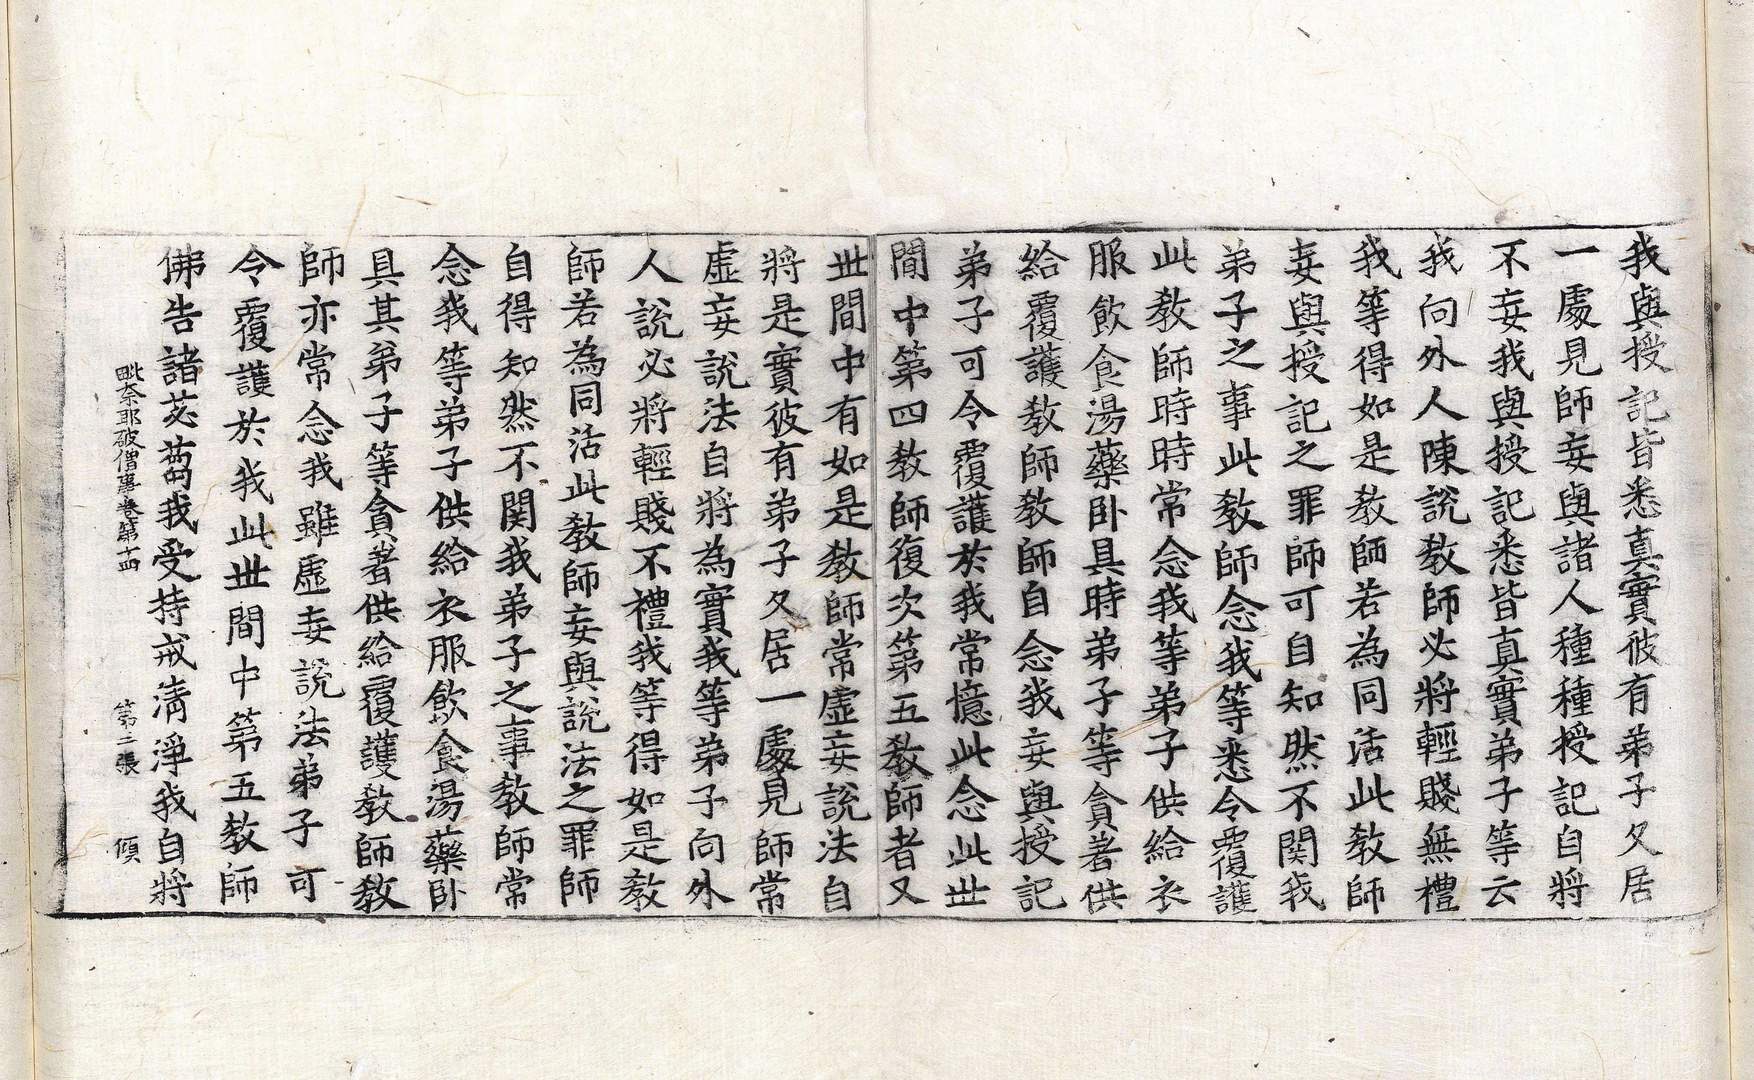 我與授記皆悉真實彼有弟子久居
一處見師妄與諸人種種授記自將
不妄我與授記悉皆真實弟子等云
我向外人陳說教師必將輕賤無禮
我等得如是教師若為同活此教師
妄與授記之罪師可自知然不関我
弟子之事此教師念我等悉令覆護
此教師時時常念我等弟子供給衣
服飲食湯藥卧具時弟子等貪著供
給覆護教師教師自念我妄與授記
弟子可令覆護於我常憶此念此世
間中第四教師復次第五教師者又
世間中有如是教師常虛妄說法自
將是實彼有弟子久居一處見師常
虛妄說法自將為實我等弟子向外
人說必將輕賤不禮我等得如是教
師若為同活此教師妄與說法之罪師
自得知然不関我弟子之事教師常
念我等弟子供給衣服飲食湯藥卧
具其弟子等貪著供給覆護教師教
師亦常念我雖虛妄說法弟子可
令覆護於我此世間中第五教師
佛告諸苾芻我受持戒淸淨我自將
毗奈耶破僧事卷第十四 第二張 傾